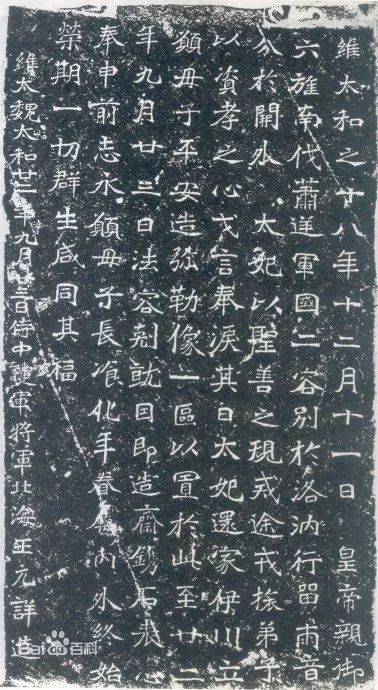 維太和之十八年十二月十一日 皇帝親御
六旌南伐蕭逆軍國二容別於洛汭行留兩音
分於闕外 太妃以聖善之規戒途戎旅弟子
以資孝之心戈言奉淚其日太妃還家伊川立
願母子平安造彌勒像一區以置於此至廿二
年九月廿三日法容剋就因即造齋鐫石表心
奉申前志永願母子長瘳化年眷屬內外終始
榮期一切群生咸同其福
維大魏太和廿二年九月廿三日侍中護軍將軍北海王元詳造
Bai百科